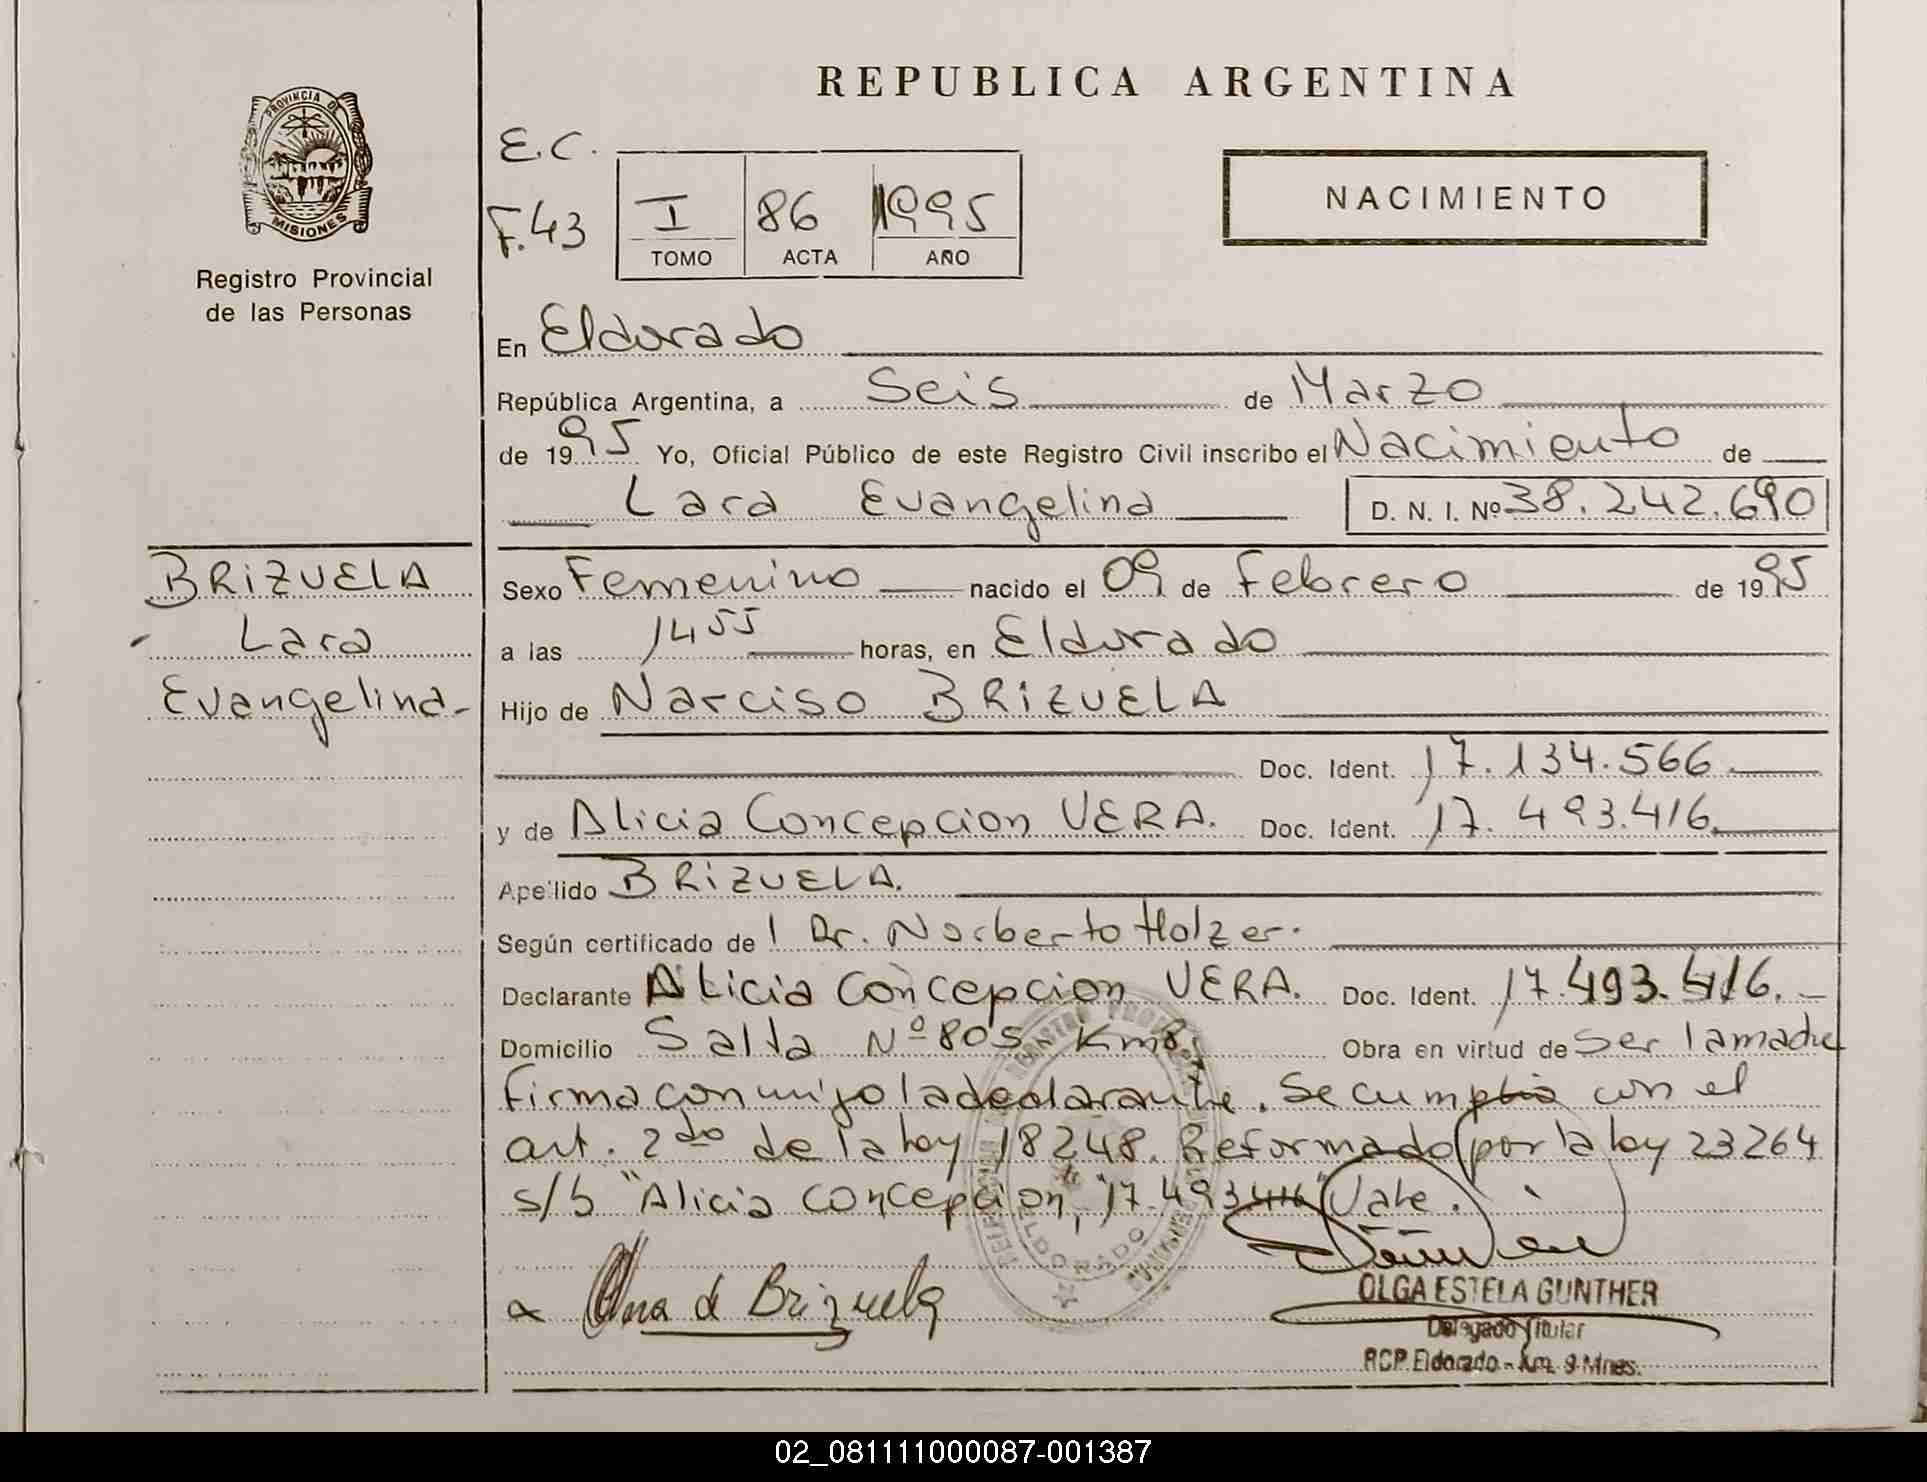 REPUBLICA ARGENTINA
PROVINCIA DE
MISIONES
Registro Provincial
de las Personas
E.C.
F.43
I 86 1995
TOMO ACTA AÑO
NACIMIENTO
En Eldorado
República Argentina, a Seis de Marzo
de 1995 Yo, Oficial Público de este Registro Civil inscribo el Nacimiento de
Lara Evangelina D. N. I. Nº 38.242.690
BRIZUELA
Lara
Evangelina-
Sexo Femenino nacido el 09 de Febrero de 1995
a las 14 55 horas, en Eldorado
Hijo de Narciso BRIZUELA
Doc. Ident. 17.134.566
y de Alicia Concepcion VERA. Doc. Ident. 17.493.416.
Apellido BRIZUELA.
Según certificado de l Dr. Norberto Holzer.
Declarante Alicia Concepcion VERA. Doc. Ident. 17.493.416.-
Domicilio Salta Nº 805 Km8, Obra en virtud de ser la madre
firma conmigo la declarante. Se cumplio con el
art. 2do de la ley 18248. Reformado por la ley 23264
s/b "Alicia Concepcion, 17.493416" Vale.
ELDORADO
de Brizuela
OLGA ESTELA GUNTHER
Delegado Titular
RCP. Eldorado - Km. 9 Mnes.
02_081111000087-001387